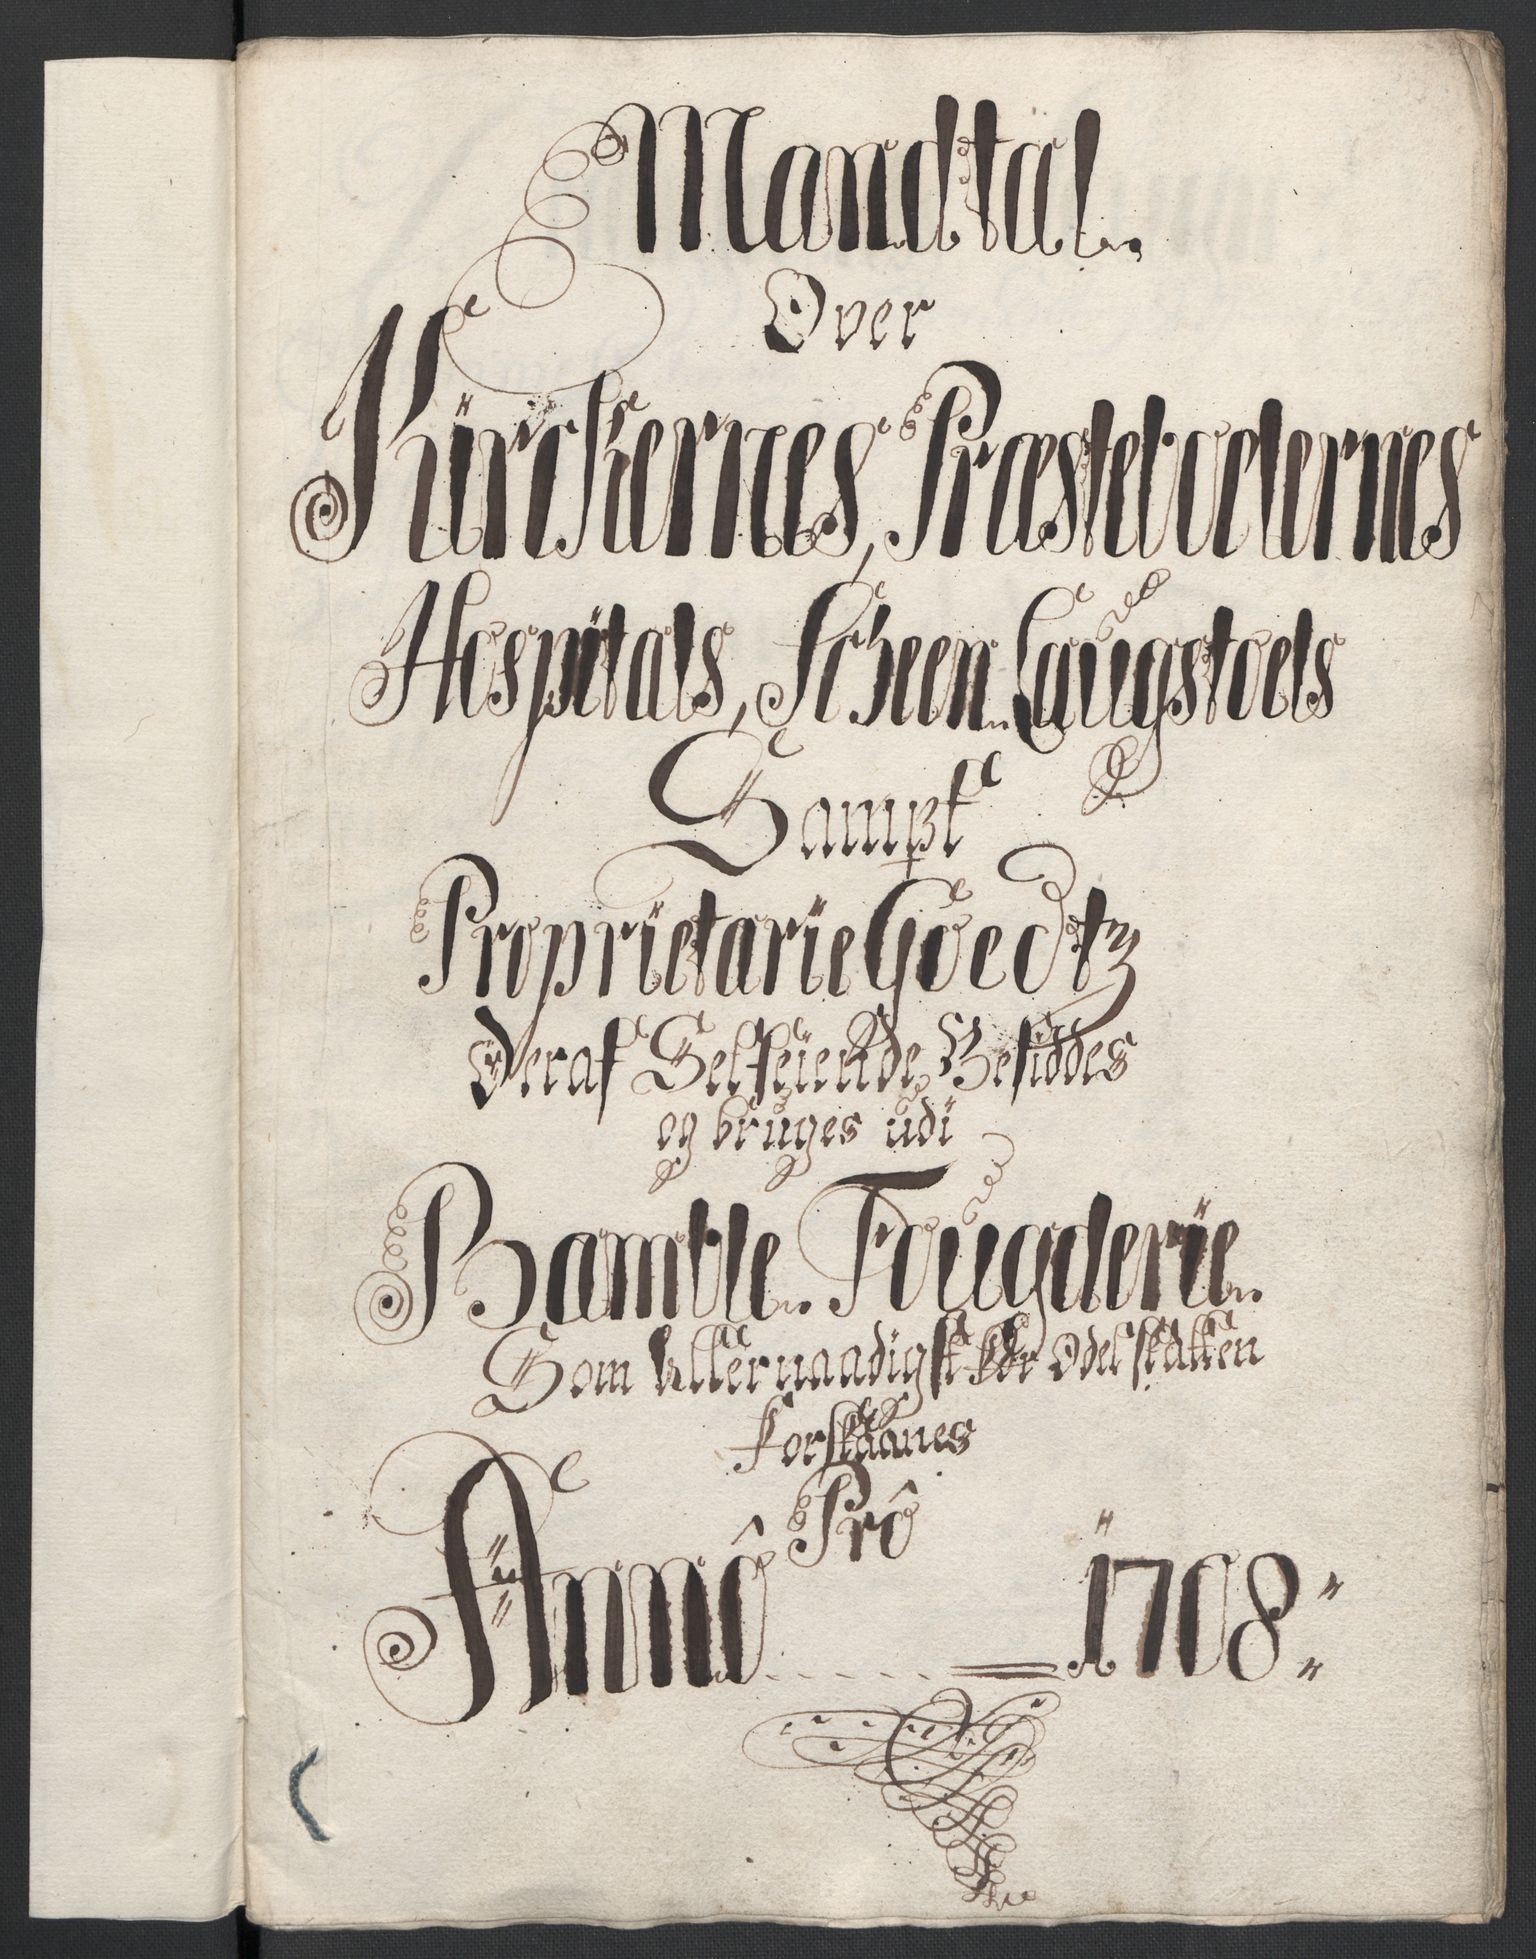 Mandtal
Over
Kürckernes, Præstebolernes
Hospitals, Scheen Laugstoels
Sampt
Proprietarie Goedtz
Deraf Selfeiende Besiddes
og bruges udi
Bamble Fougderie
Som Allernaadigst for Odelskatten
Forskaanes
Pro
Anno 1708